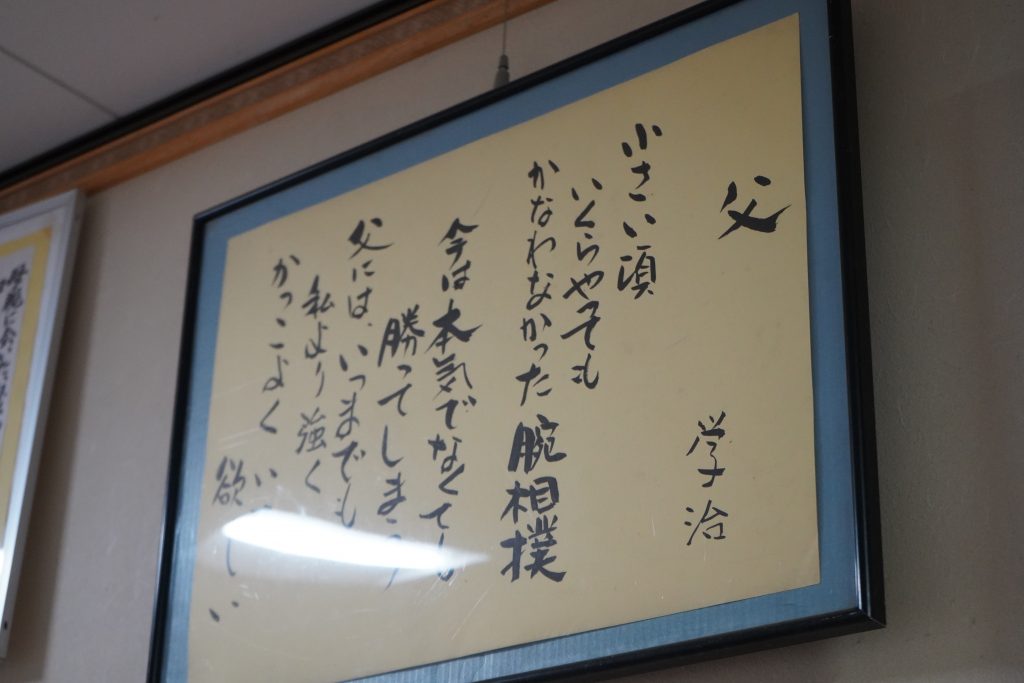 父
学治
小さい頃
いくらやっても
かなわなかった腕相撲
今は本気でなくても
勝ってしまう
父には、いつまでも
私より強く
かっこよく い
欲しい